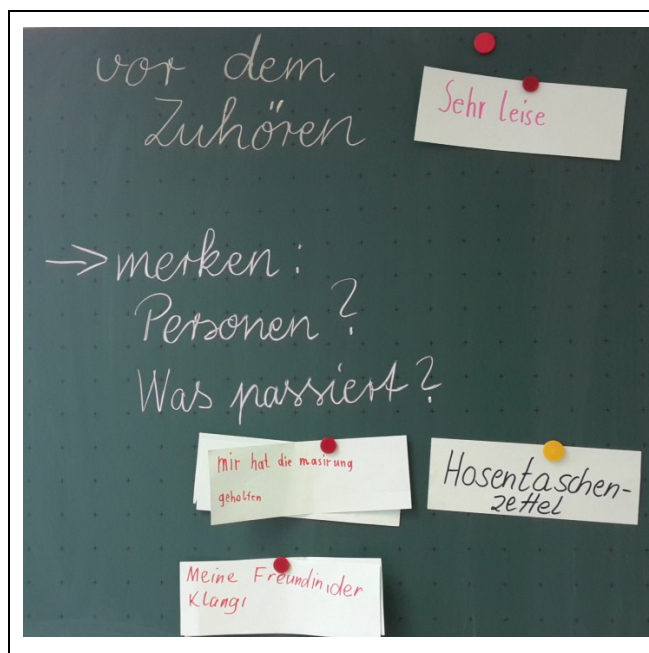 vor dem
Zuhören
Sehr leise
→ merken:
Personen?
Was passiert?
mir hat die masirung
geholfen
Hosentaschen-
zettel
Meine Freundin, der
Klang,